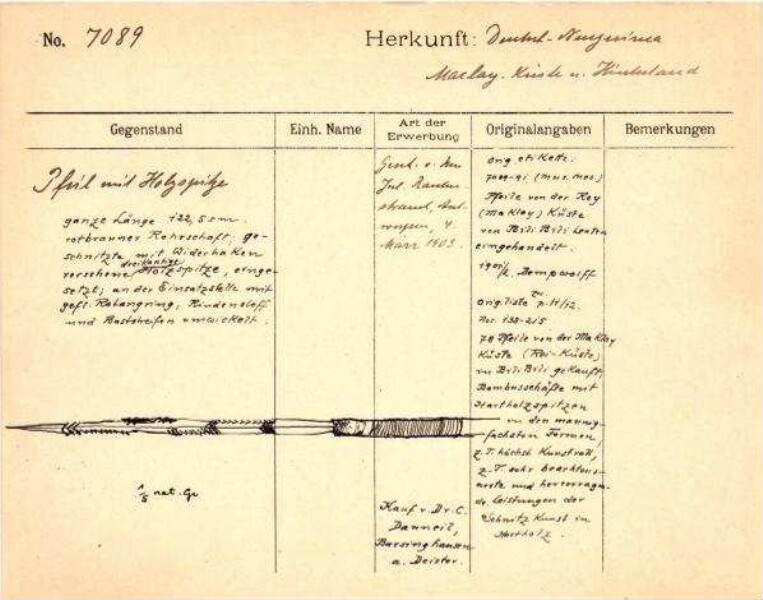 No. 7089
Herkunft: Deutsch-Neuguinea
Maclay-Küste u. Hinterland
Gegenstand
Einh. Name
Art der Erwerbung
Originalangaben
Bemerkungen
Pfeil mit Holzspitze
ganze Länge 122,5 cm.
rotbrauner Rohrschaft; ge-
schnitzte mit Widerhaken
versehene dreikantige Holzspitze, einge-
setzt; an der Einsatzstelle mit
gefl. Rotangring, Rindenstoff
und Baststreifen umwickelt.
1/5 nat. Gr
Gesch. v.
Jul.
März 1903.
Kauf v. Dr. C.
Danneil,
Barsinghausen
a. Deister.
Orig. etikette.
7089-91 (mus. nos.)
Pfeile von der Rey
(Maklay) Küste
von Bili Bili Leuten
eingehandelt.
Dempwolff
Orig. liste
Nos. 138-215
78 Pfeile von der Maklay
Küste (Rai-Küste)
in Bili Bili gekauft;
Bambusschäfte mit
Hartholzspitzen
in den mannig-
fachsten Formen,
z. T. höchst kunstvoll,
z. T. sehr beachtens-
werte und hervorragen-
de Leistungen der
Schnitz Kunst in
Hartholz.